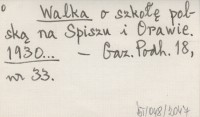 Walka o szkołę pol-
ską na Spiszu i Orawie.
1930... — Gaz. Podh. 18,
nr 33.